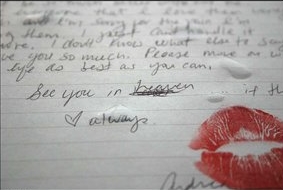 that I love them
and I'm sorry for the pain I'm
them. I just can't handle it
more. I don't know what else to say
ve you so much. Please move on w
life as best as you can.
See you in heaven ... if th
♡ always
Andrea